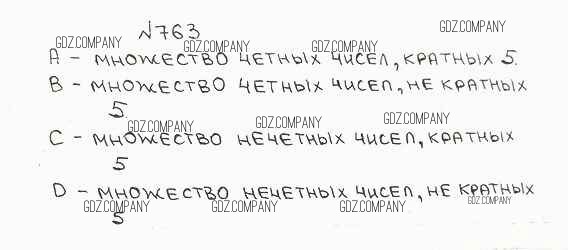 №763
GDZ.COMPANY
GDZ.COMPANY GDZ.COMPANY GDZ.COMPANY
A - множество четных чисел, кратных 5.
B - множество четных чисел, не кратных
5.
GDZ.COMPANY GDZ.COMPANY GDZ.COMPANY
C - множество нечетных чисел, кратных
5
D - множество нечетных чисел, не кратных
5
GDZ.COMPANY GDZ.COMPANY GDZ.COMPANY GDZ.COMPANY